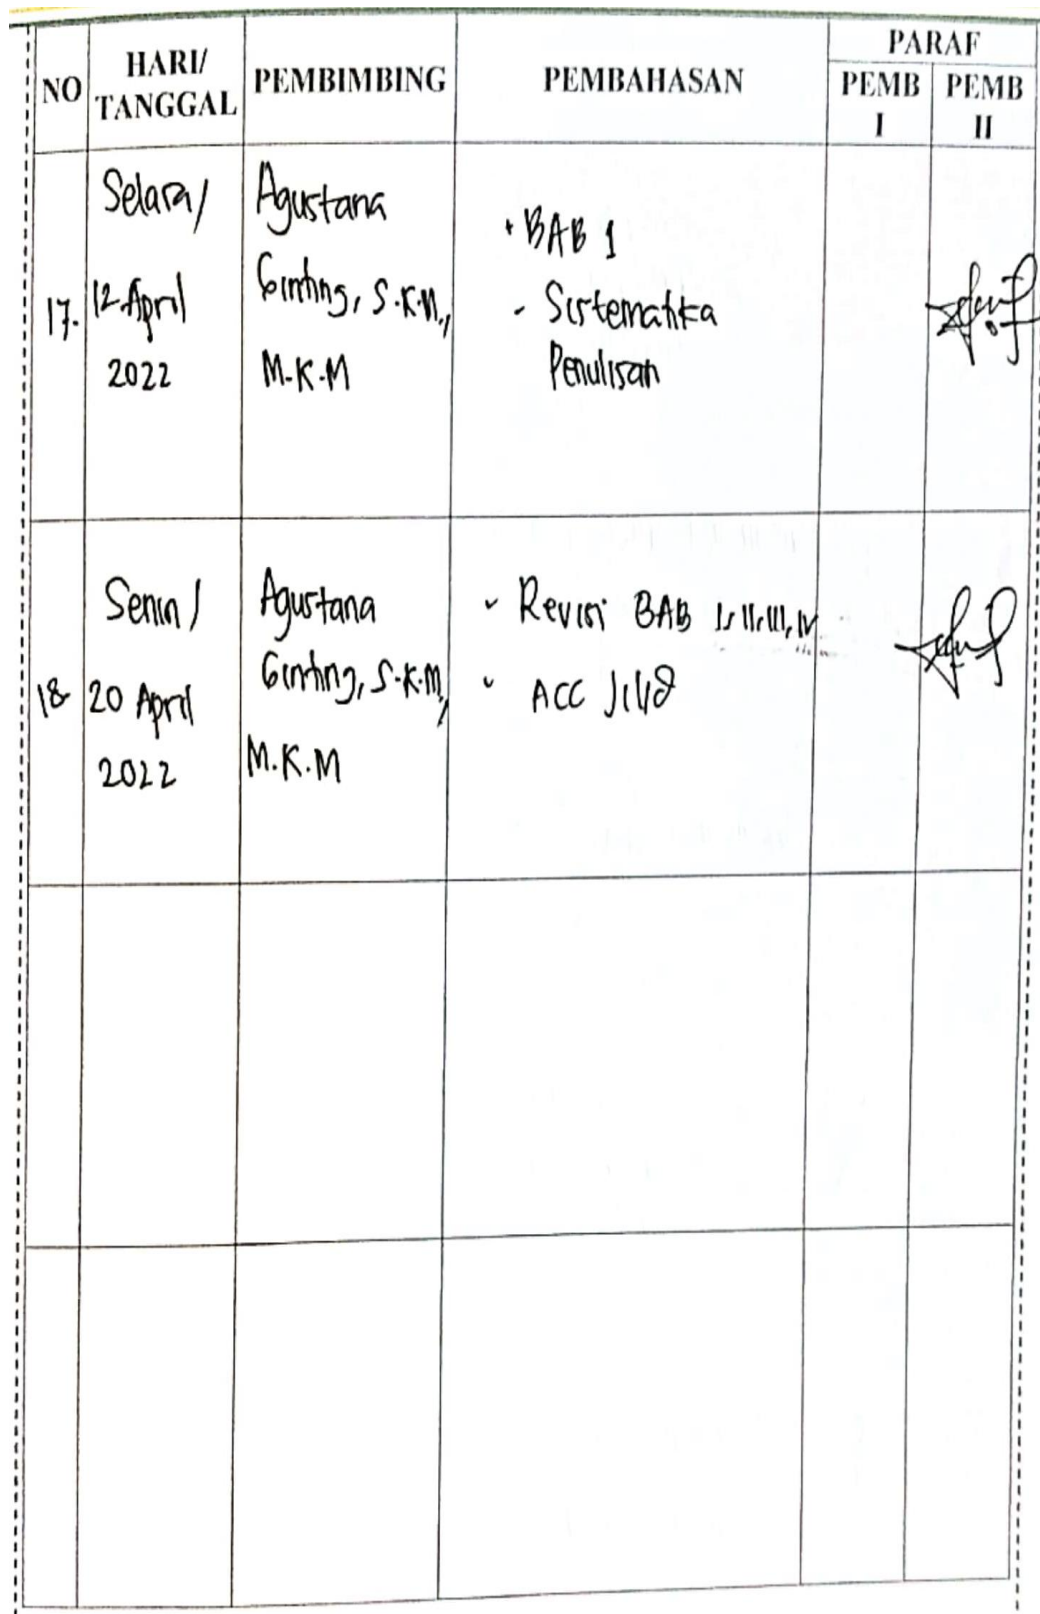 NO
HARI/
TANGGAL
PEMBIMBING
PEMBAHASAN
PARAF
PEMB
I
PEMB
II
17.
Selasa/
12 April
2022
Agustana
Ginting, S.K.M.,
M.K.M
• BAB 1
- Sistematika
Penulisan
18.
Senin/
20 April
2022
Agustana
Ginting, S.K.M,
M.K.M
- Revisi BAB I, II, III, IV
- ACC Jilid